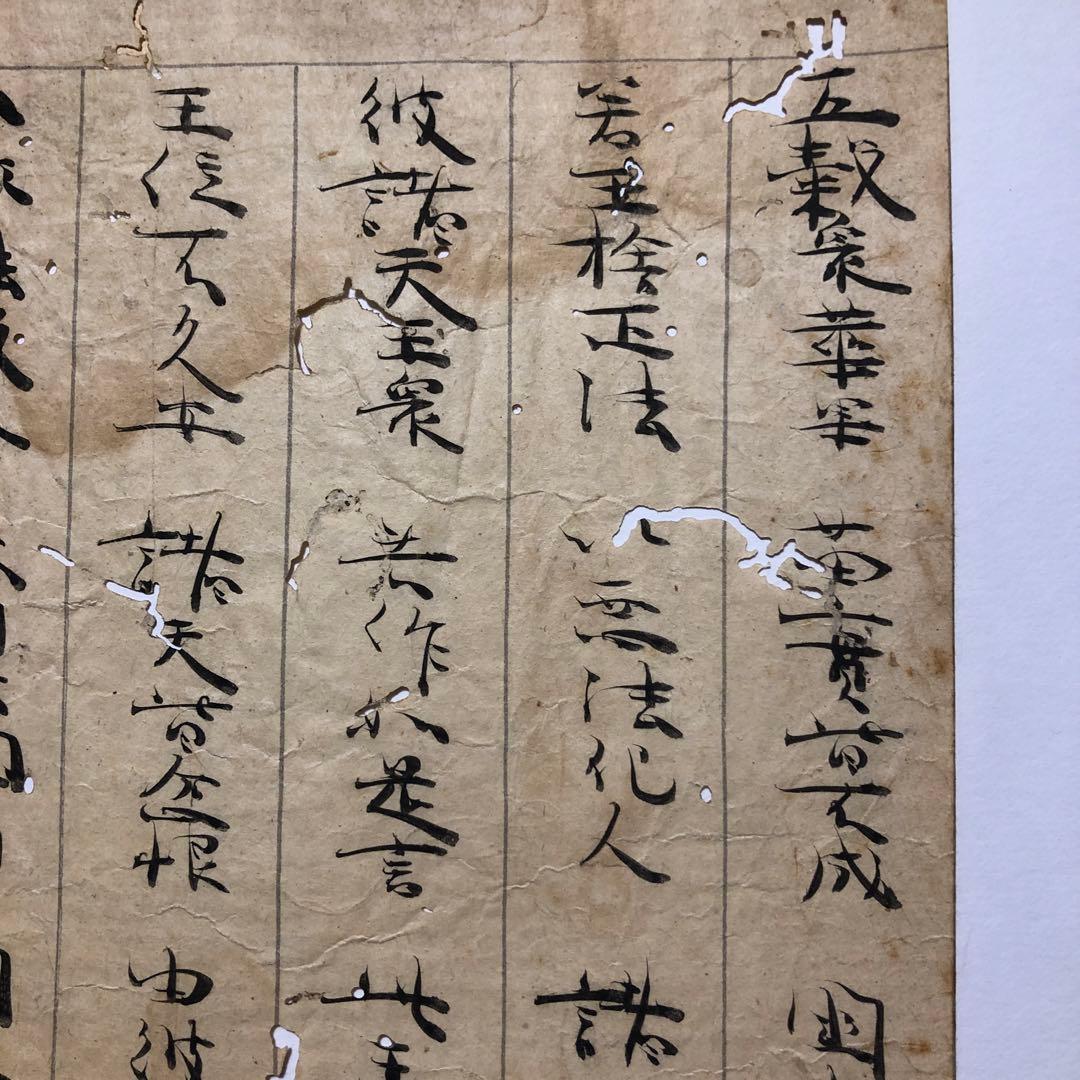 五穀衆華果 苗實皆不成 國
若王捨正法 以惡法化人 諸
彼諸天王衆 共作如是言 此王
王位不久安 諸天皆忿恨 由彼